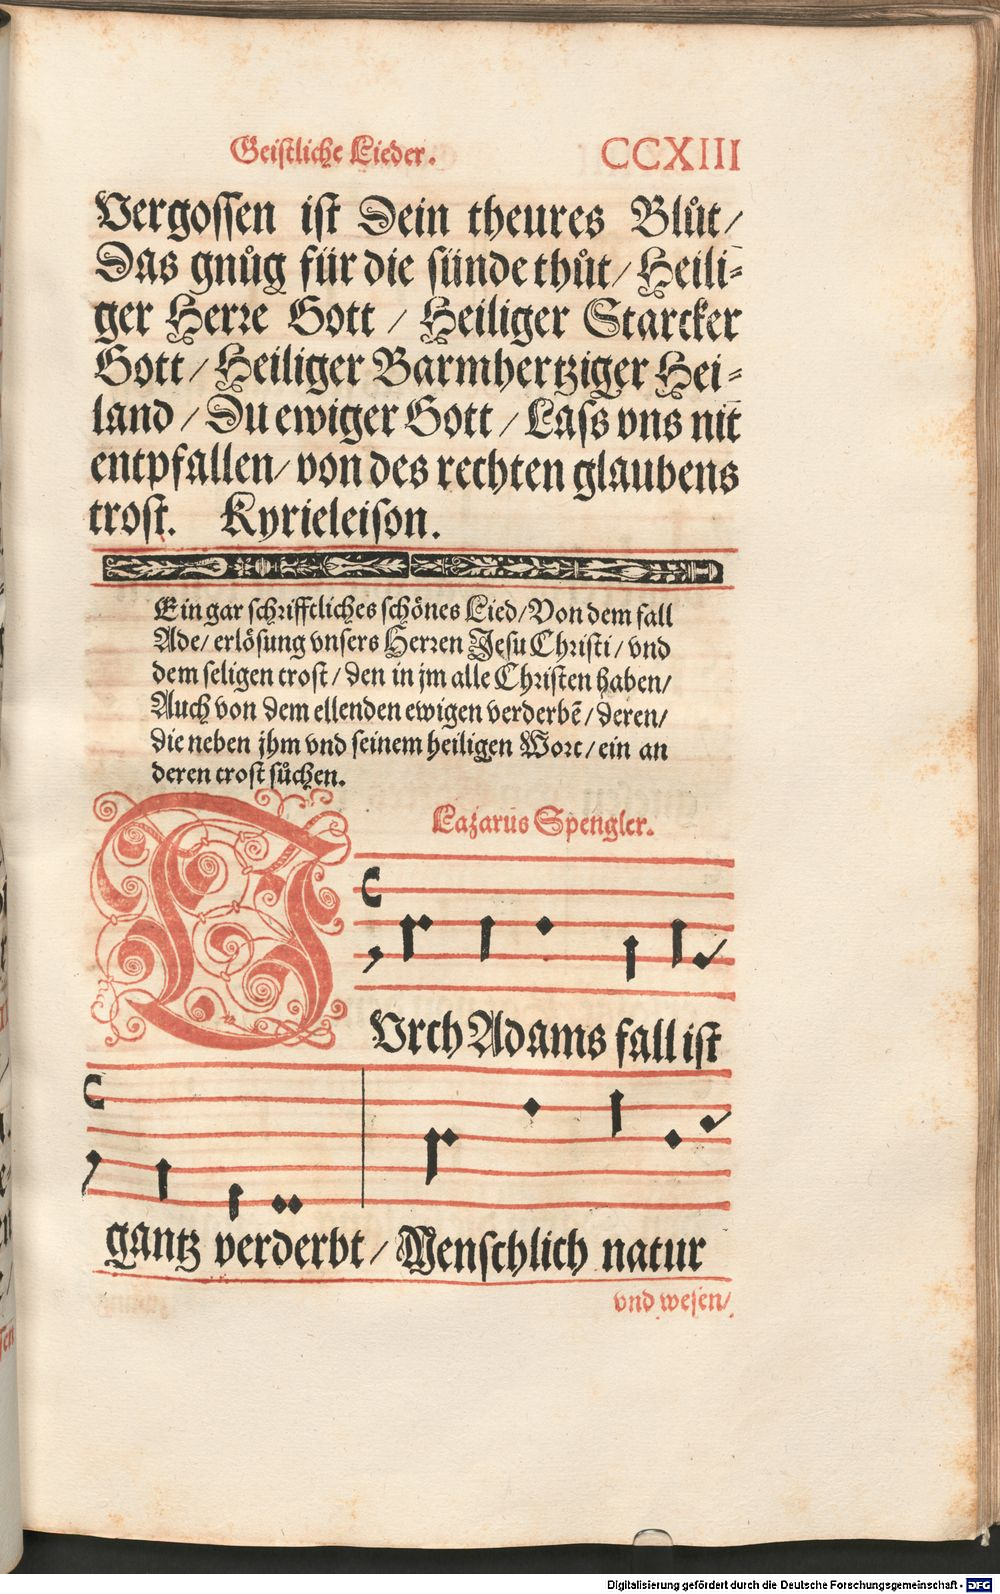 Geistliche Lieder. CCXIII
Vergossen ist Dein theures Blůt/
Das gnůg für die sünde thůt/ Heili-
ger Herre Gott / Heiliger Starcker
Gott/ Heiliger Barmhertziger Hei-
land/ Du ewiger Gott / Lass vns nit
entpfallen/ von des rechten glaubens
trost. Kyrieleison.
Ein gar schrifftliches schönes Lied/ Von dem fall
Ade/ erlösung vnsers Herren Jesu Christi/ vnd
dem seligen trost/ den in jm alle Christen haben/
Auch von dem ellenden ewigen verderbē/ deren/
die neben jhm vnd seinem heiligen Wort/ ein an
deren trost sůchen.
Lazarus Spengler.
DVrch Adams fall ist
gantz verderbt/ Menschlich natur
vnd wesen/
Digitalisierung gefördert durch die Deutsche Forschungsgemeinschaft - DFG